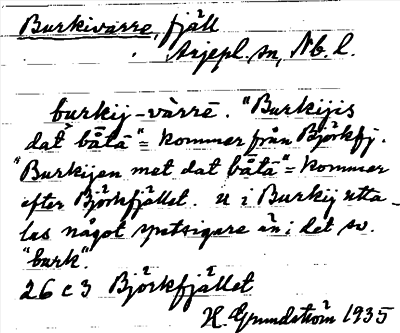 Burkivarre, fjäll
Arjepl. sn, Nb. l.
burkij-vàrrē. "Burkijis
dat bǟtā" = kommer från Björkfj.
"Burkijen met dat bǟtā" = kommer
efter Björkfjället. u i Burkij utta-
las något spetsigare än i det sv.
"burk".
26 c 3 Björkfjället
H. Grundström 1935